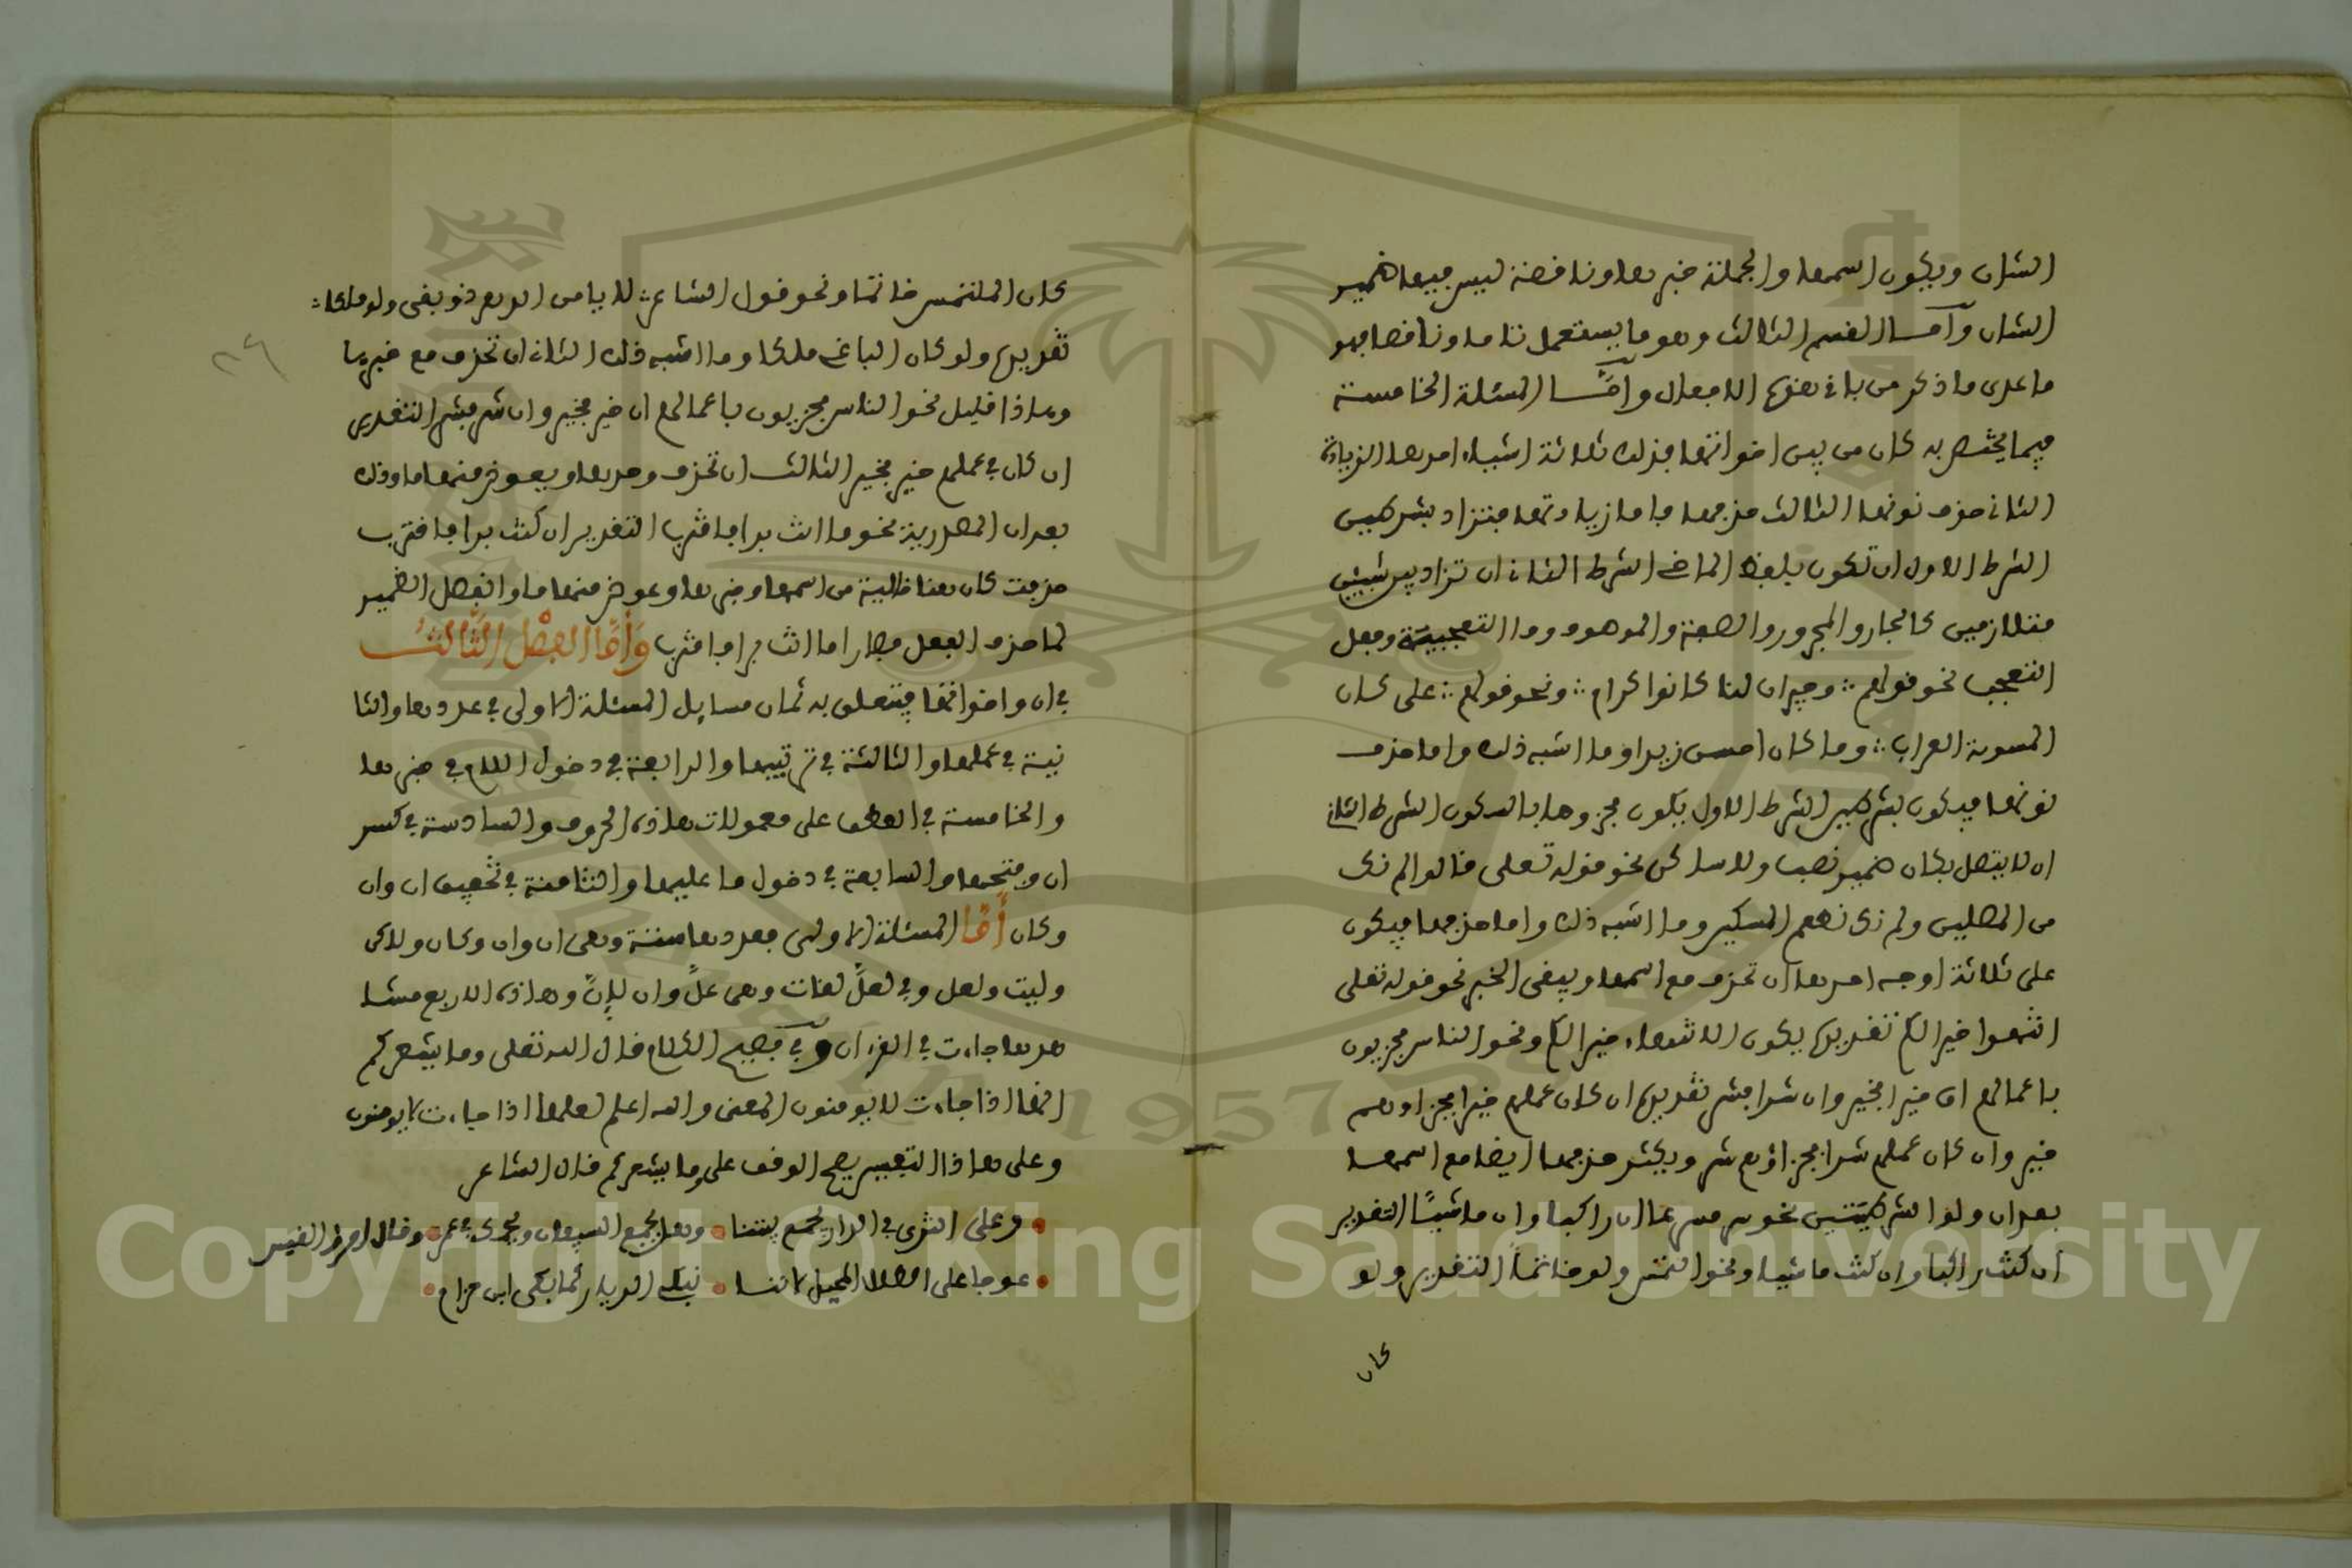 الشان ويكون اسمها والجملة خبرها وناقصة ليس فيها ضمير
الشان وأما القسم الثالث وهو ما يستعمل تاما وناقصا فهو
ما عدى ما ذكر من باقي هذه الافعال وأما المسئلة الخامسة
فيما يختص به كان من بين اخواتها فذلك ثلاثة اشياء احدها الزيادة
الثاني حذف نونها الثالث حذفها فاما زيادتها فتزاد بشرطين
الشرط الاول ان تكون بلفظ الماضي الشرط الثاني ان تزاد بين شيئين
متلازمين كالجار والمجرور والصفة والموصوف وما التعجبية وفعل
التعجب نحو قولهم ∴ وجيران لنا كانوا كرام ∴ ونحو قولهم ∴ على كان
المسومة العراب ∴ وما كان احسن زيدا وما اشبه ذلك واما حذف
نونها فيكون بشرطين الشرط الاول يكون مجزوما بالسكون الشرط الثاني
ان لا يتصل بكان ضمير نصب ولا ساكن نحو قوله تعلى قالوا لم نك
من المصلين ولم نك نطعم المسكين وما اشبه ذلك واما حذفها فيكون
على ثلاثة اوجه احدها ان تحذف مع اسمها ويبقى الخبر نحو قوله تعلى
انتهوا خيرا لكم تقديره يكون الانتهاء خيرا لكم ونحو الناس مجزيون
باعمالهم ان خيرا فخير وان شرا فشر تقديره ان كان عملهم خيرا فجزاؤهم
خير وان كان عملهم شرا فجزاؤهم شر ويكثر حذفها ايضا مع اسمها
بعد ان ولو الشرطيتين نحو سر مسرعا ان راكبا وان ماشيًا التقدير
ان كنت راكبا وان كنت ماشيا ونحو التمس ولو خاتمًا التقدير ولو
كان
كان الملتمس خاتما ونحو قول الشاعر ∴ لا يامن الدهر ذو بغى ولو ملكا ∴
تقديره ولو كان الباغي ملكا وما اشبه ذلك الثاني ان تحذف مع خبرها
وهاذا قليل نحو الناس مجزيون باعمالهم ان خير فخير وان شر فشر التقدير
ان كان في عملهم خير فخير الثالث ان تحذف وحدها ويعوض منها ما وذلك
بعد ان المصدرية نحو ما انت برا فاقترب التقدير ان كنت برا فاقترب
حذفت كان هنا خالية من اسمها وخبرها وعوض منها ما وانفصل الضمير
لما حذف الفعل فصار اما انت برا فاقترب وَأَمَّا الفصْل الثَّالثُ
في ان واخواتها فيتعلق به ثمان مسايل المسئلة الاولى في عددها والثا
نية في عملها والثالثة في ترتيبها والرابعة في دخول اللام في خبرها
والخامسة في العطف على معمولات هاذه الحروف والسادسة في كسر
ان وفتحها والسابعة في دخول ما عليها والثامنة في تخفيف ان وان
وكان أَمَّا المسئلة الاولى فعددها ستة وهى ان وان وكان ولاكن
وليت ولعل وفي لعلّ لغات وهى علّ وان لإنّ وهاذه الاربع
جاءت في القرءان وفي فصيح الكلام قال الله تعلى وما يشعركم
انها اذا جاءت لا يومنون المعنى والله اعلم لعلها اذا جاءت لا يومنون
وعلى هاذا التفسير يصح الوقف على وما يشعركم قال الشاعر
وعلى النوى في الدار يجمع بيننا • وهل يجمع السيفان ويحك في غمد • وقال امرؤ القيس
• عوجا على الطلل المحيل لاننا • نبك الديار كما بكى ابن حزام •